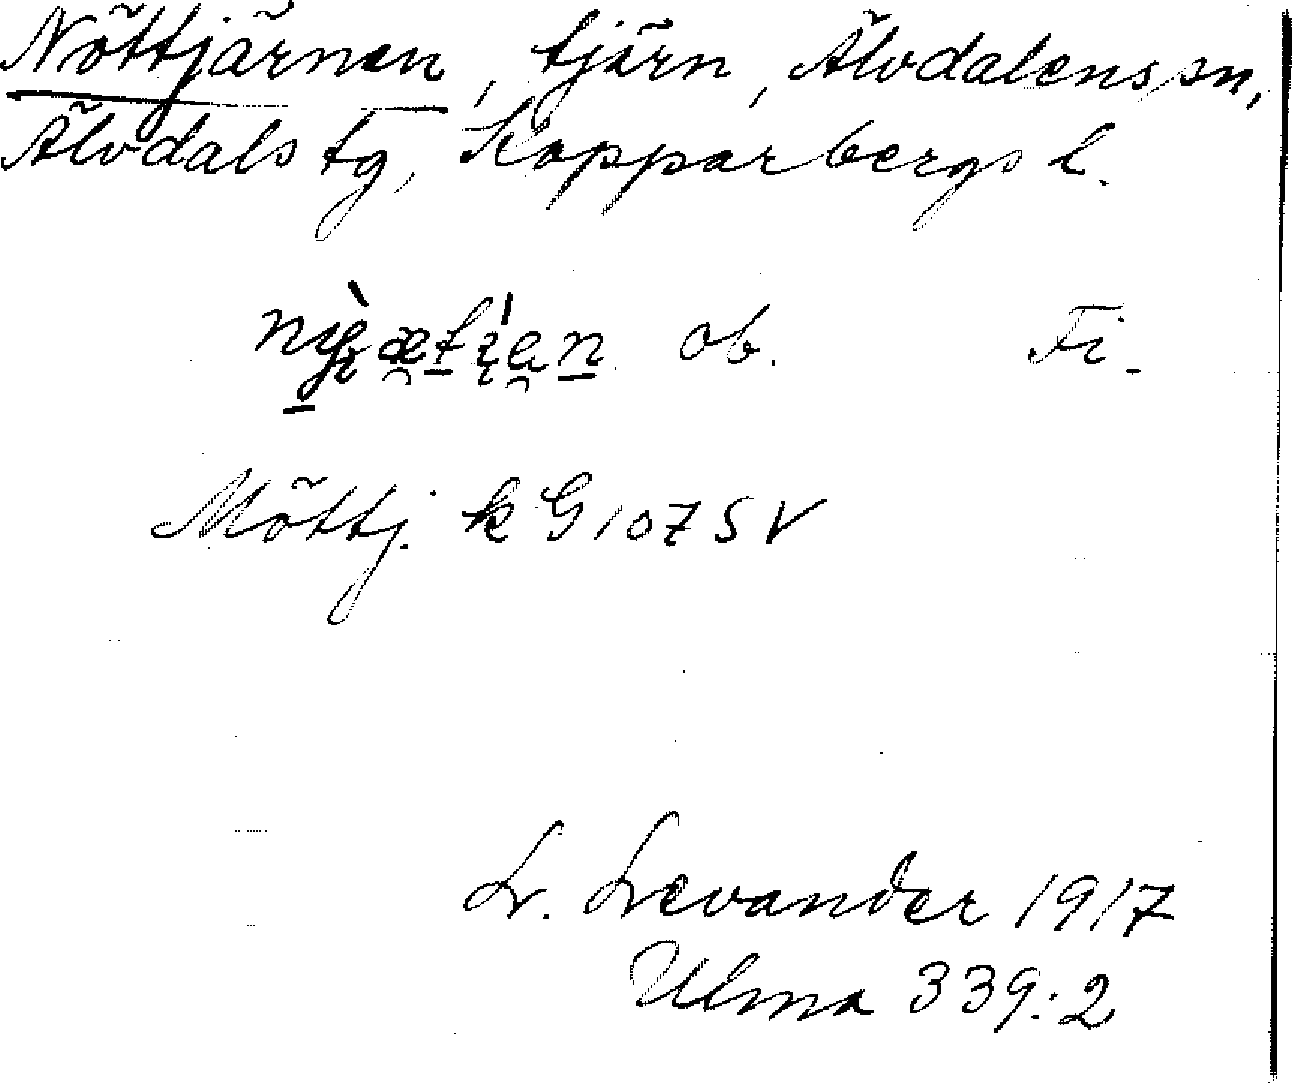 Nöttjärnen, tjärn, Älvdalens sn,
Älvdals tg, Kopparbergs l.
ob. Fi.
Möttj. k G 107 SV
L. Levander 1917
Ulma 339:2